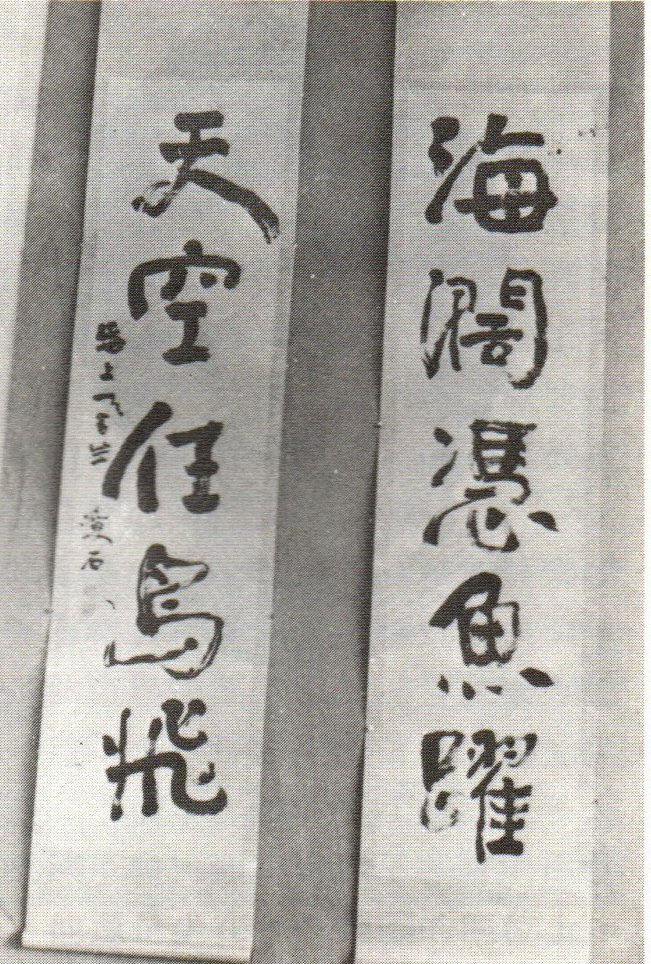 海闊憑魚躍
天空任鳥飛